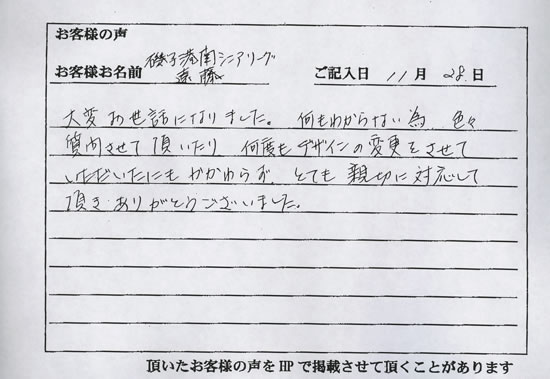 お客様の声
磯子港南シニアリーグ
お客様お名前 遠藤 ご記入日 11月 28.日
大変お世話になりました。何もわからない為、色々
質問させて頂いたり 何度もデザインの変更をさせて
いただいたにもかかわらず、とても親切に対応して
頂き、ありがとうございました。
頂いたお客様の声をHPで掲載させて頂くことがあります